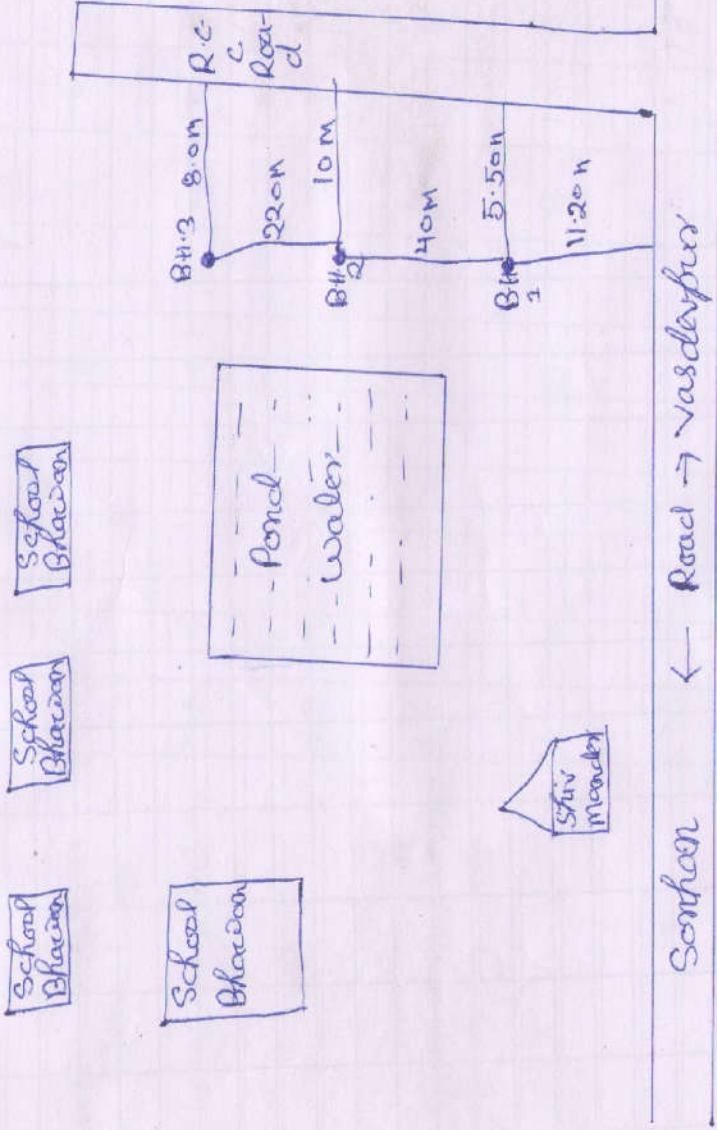 School
Bhawan
School
Bhawan
School
Bhawan
School
Bhawan
Pond
Water
Shiv
Mander
BH.3 8.0m
R.C
C
Road
d
220M
BH.
2
10M
40M
BH
1
5.50n
11.20n
← Road → Vasdevpur